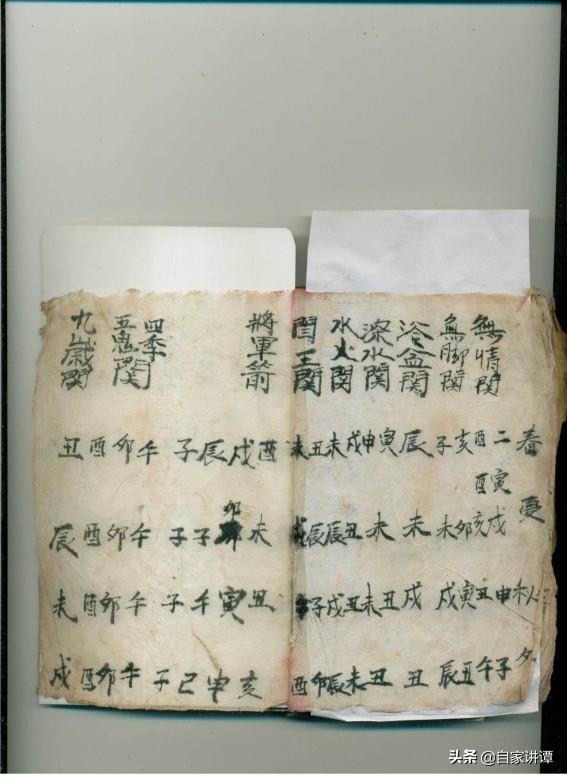 春夏秋冬
無情関
二寅戌申子
酉酉亥丑午
無脚関
亥卯寅丑
子未戌辰
浴盆関
辰未戌丑
深水関
寅未丑丑
申未
水火関
戌丑丑未
未辰戌辰
閻王関
丑辰子卯
未酉
將軍箭
酉未丑亥
戌卯寅申
辰子午巳
四季
五鬼関
子子子子
午午午午
卯卯卯卯
酉酉酉酉
九歲関
丑辰未戌
头条 @自家讲谭